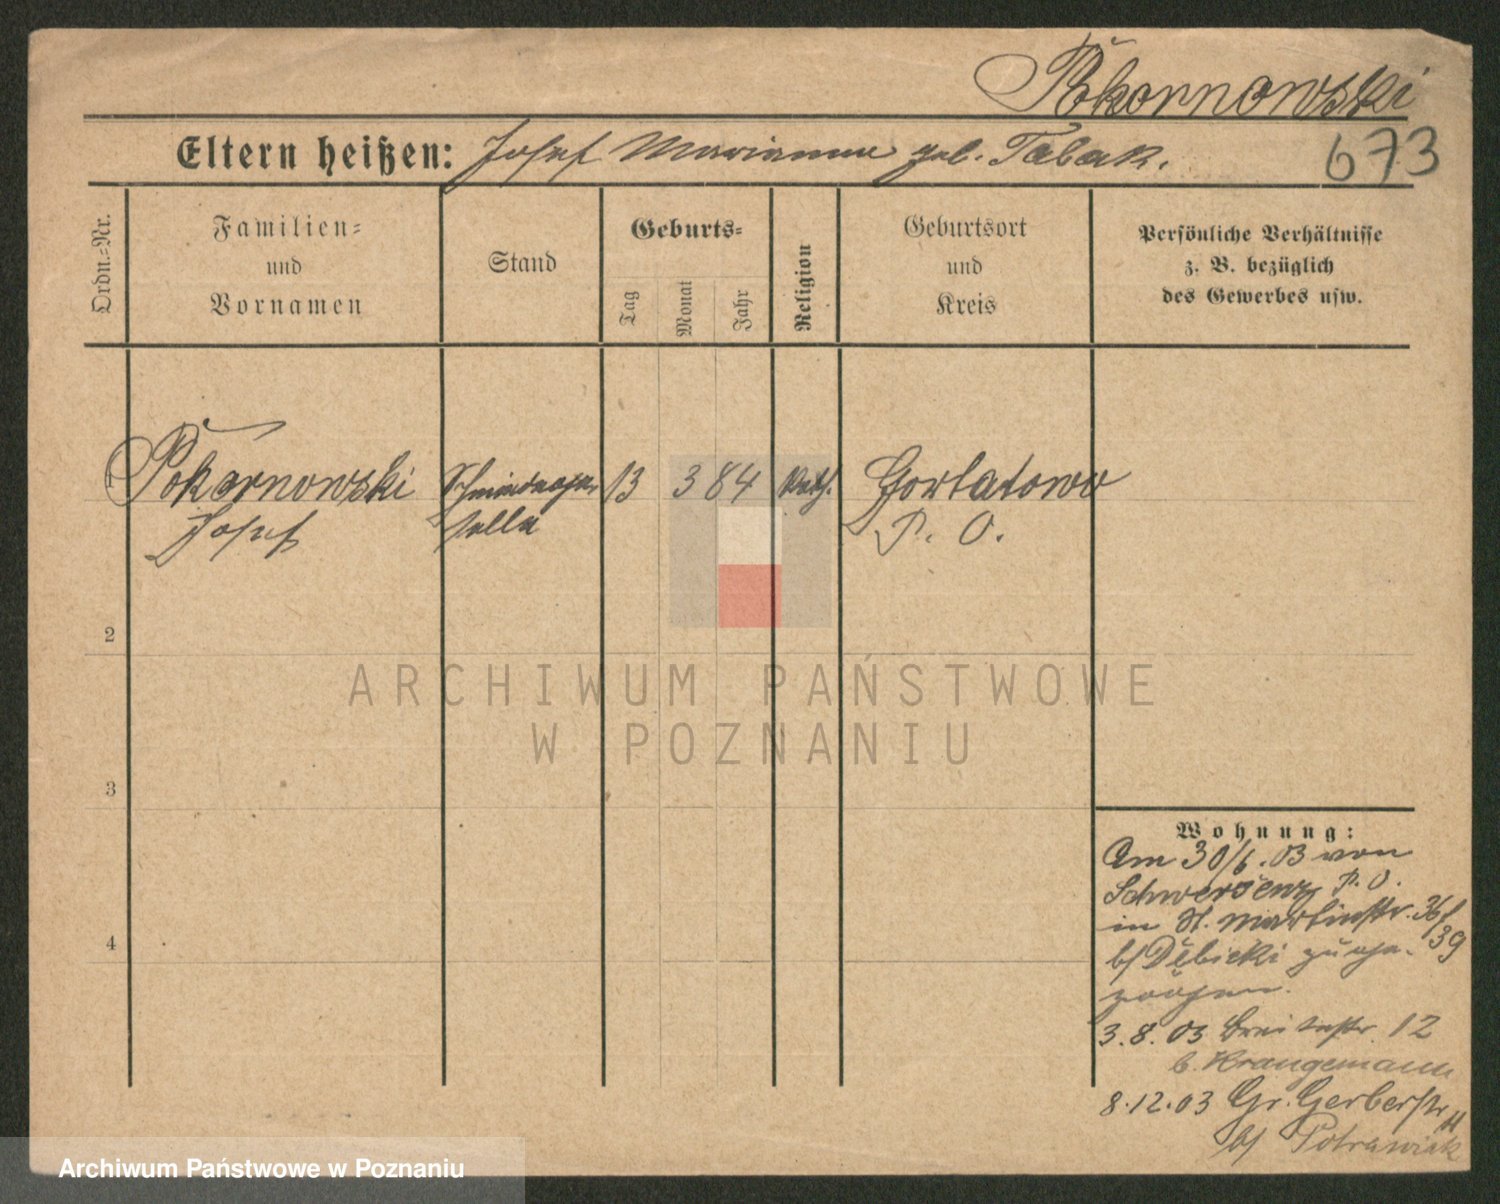 Pokornowski
Eltern heißen: Josef Marianna geb. Tabak.
673
Ordn.-Nr.
Familien-
und
Vornamen
Stand
Geburts-
Tag
Monat
Jahr
Religion
Geburtsort
und
Kreis
Persönliche Verhältnisse
z. B. bezüglich
des Gewerbes usw.
1 Pokornowski Schmiedege 13 3 84 kath. Gortatowo
Josef selle P. O.
2
3
4
ARCHIWUM PAŃSTWOWE
W POZNANIU
Wohnung:
Am 30/6.03 von
Schwersenz P. O.
in St. Martinstr. 36/
b/ Dębicki zuge- 39
zogen.
3.8.03 Breitestr. 12
b. Krangemann
8.12.03 Gr. Gerberstr
b/ Potrawiak
Archiwum Państwowe w Poznaniu